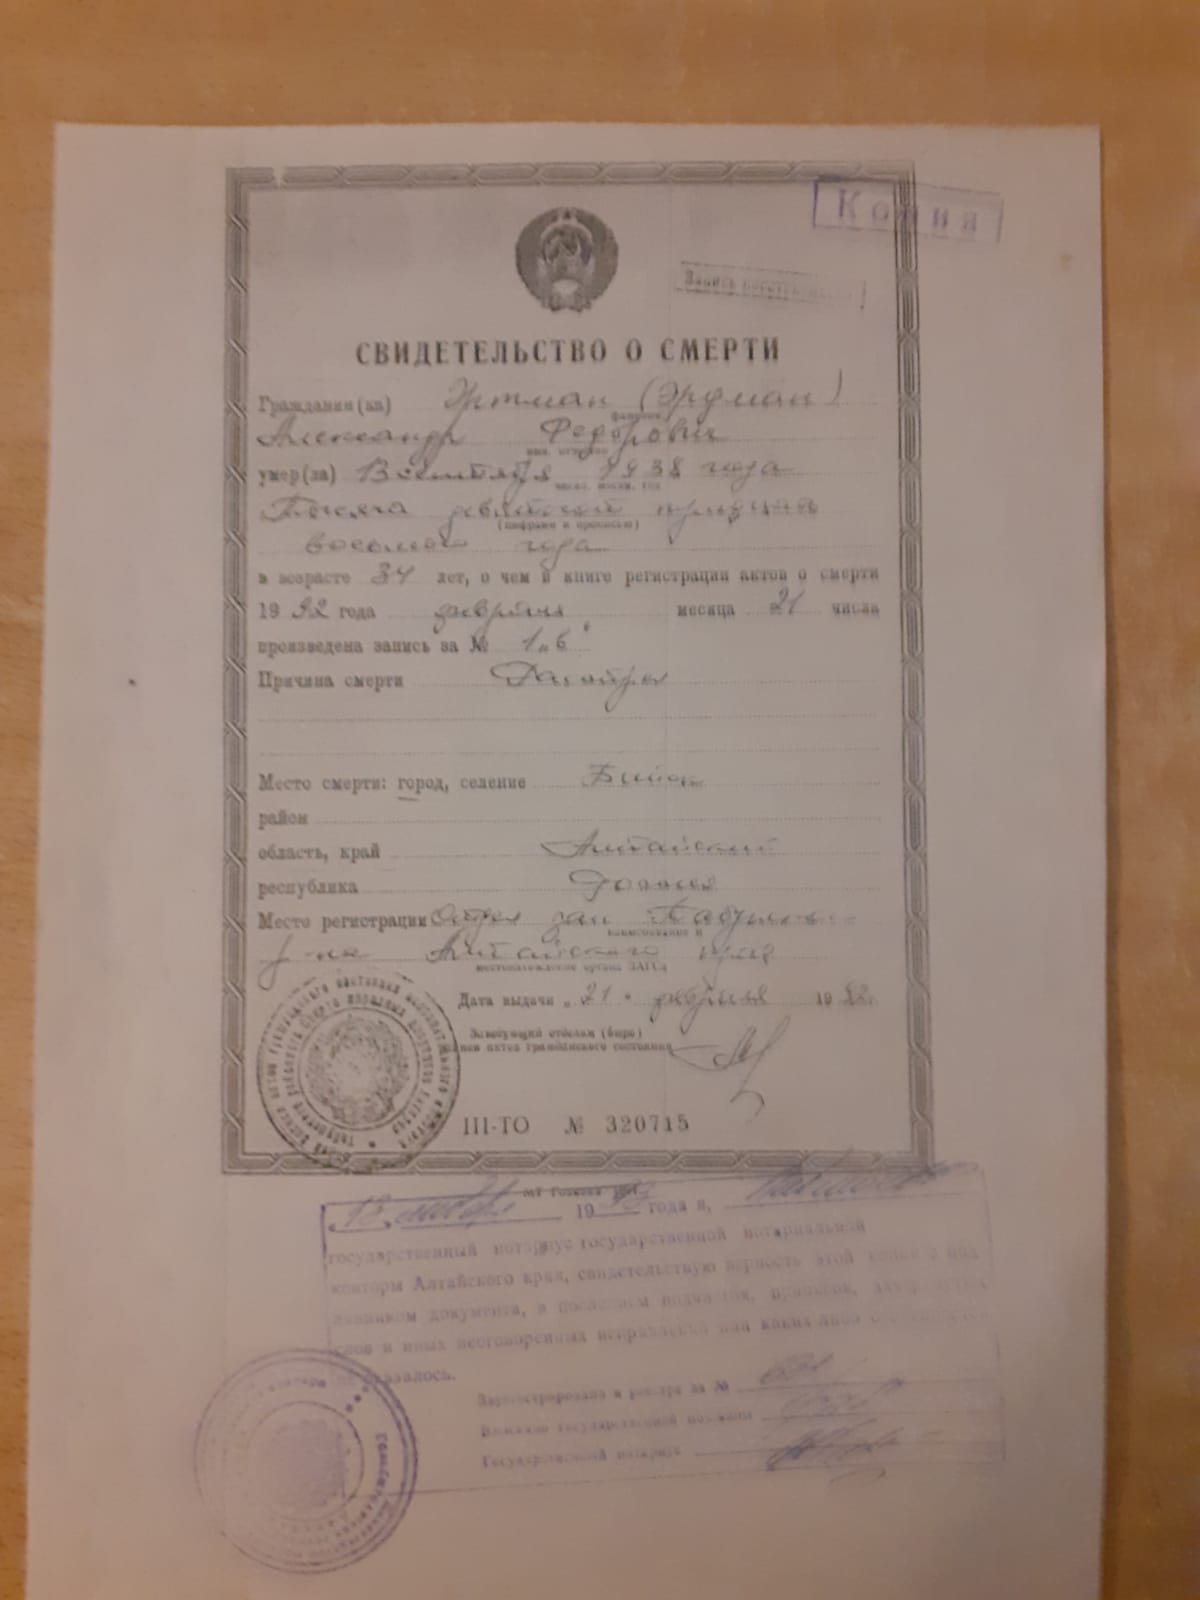 Копия
Запись
СВИДЕТЕЛЬСТВО О СМЕРТИ
Гражданин(ка) Эртман (Эрдман)
фамилия
Александр Федорович
имя, отчество
умер(ла) 13 сентября 1938 года
число, месяц, год
Тысяча девятьсот тридцать
(цифрами и прописью)
восьмого года
в возрасте 34 лет, о чем в книге регистрации актов о смерти
1992 года февраля месяца 21 числа
произведена запись за №
Причина смерти Расстрел
Место смерти: город, селение Бийск
район
область, край Алтайский
республика Россия
Место регистрации Отдел загс
наименование и
р-на Алтайского края
местонахождение органа ЗАГСа
Дата выдачи „21“ февраля 1992г.
Заведующий отделом (бюро)
записи актов гражданского состояния
III-ТО № 320715
19 года я,
государственный нотариус государственной нотариальной
конторы Алтайского края, свидетельствую верность этой копии с под
линником документа, в последнем подчисток, приписок, зачеркнутых
слов и иных неоговоренных исправлений или каких-либо особенностей
не оказалось.
Зарегистрировано в реестре за №
Взыскано государственной пошлины
Государственный нотариус